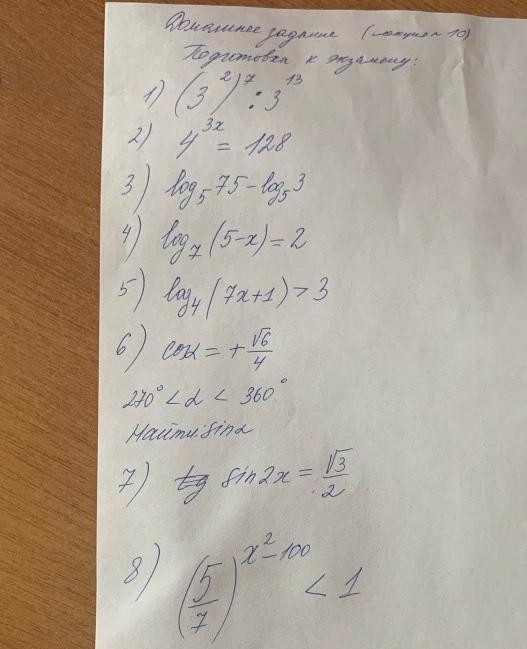 Домашнее задание (лекция 10)
Подготовка к экзамену:
1) (3²)⁷ : 3¹³
2) 4³ˣ = 128
3) log₅75 - log₅3
4) log₇(5-x) = 2
5) log₄(7x+1) > 3
6) cosα = +√6/4
270° < α < 360°
Найти: sinα
7) sin2x = √3/2
8) (5/7)^(x²-100) < 1